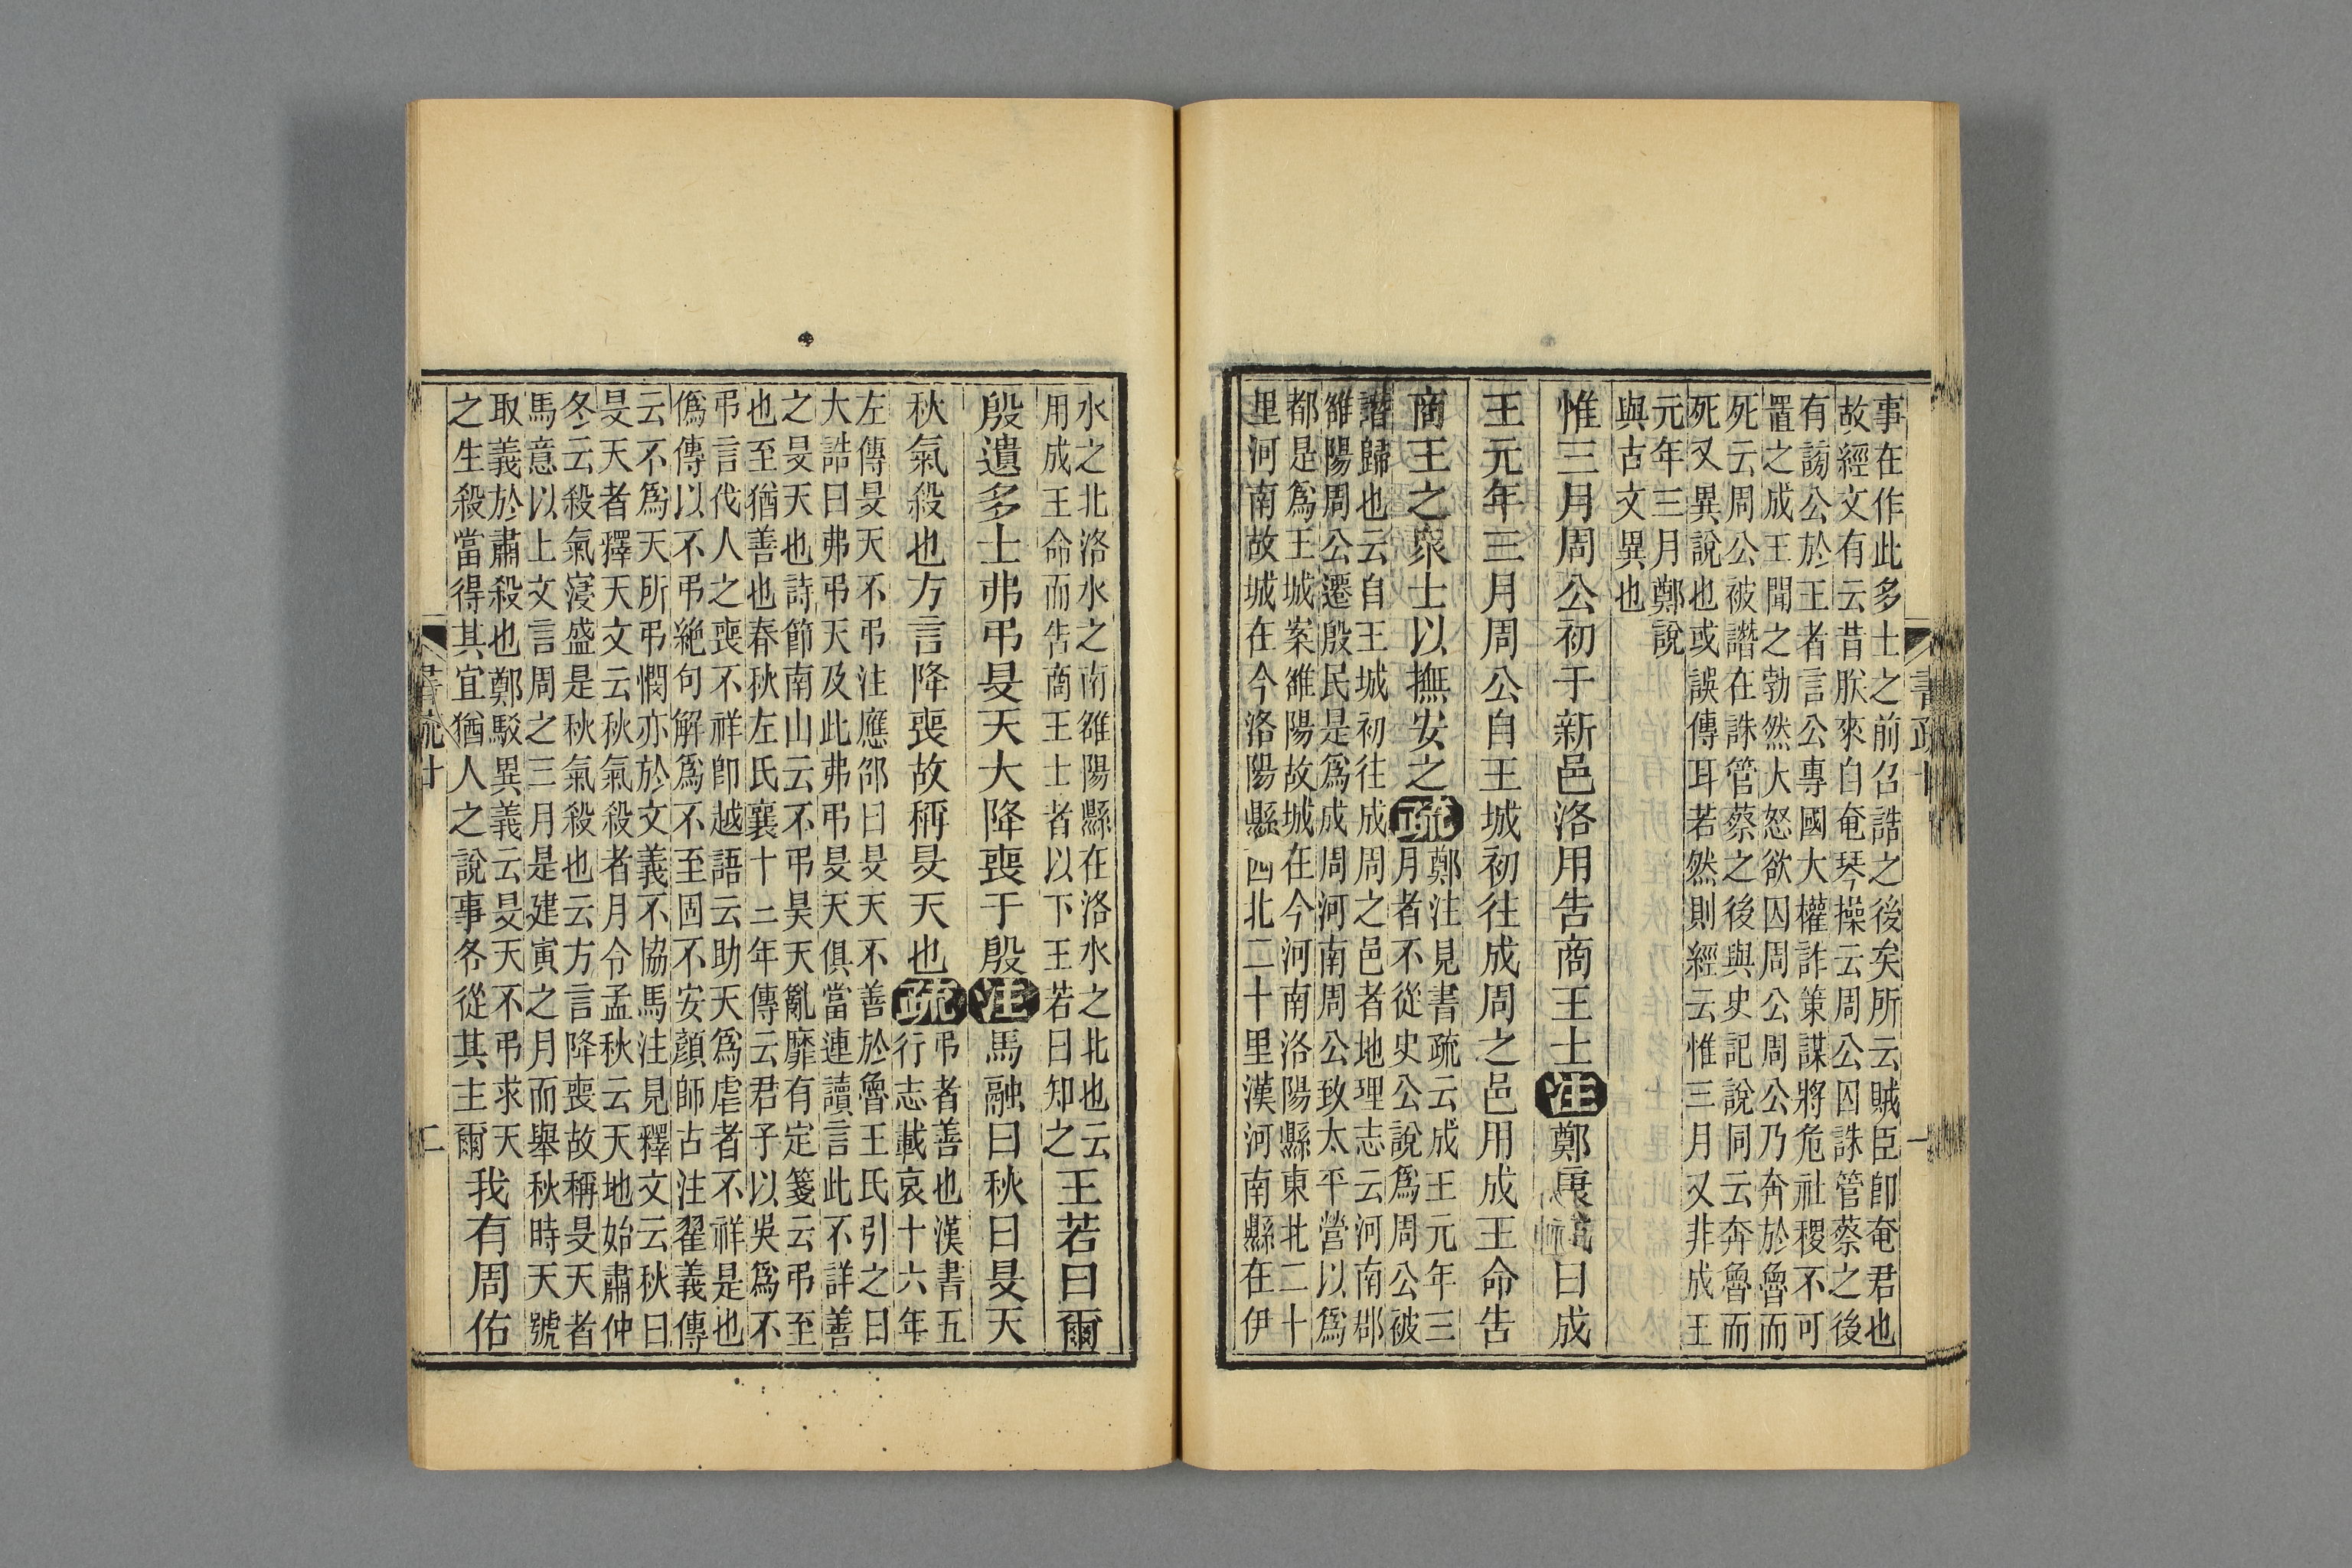 書疏十　一
事在作此多士之前召誥之後矣所云賊臣卽奄君也
故經文有云昔朕來自奄琴操云周公囚誅管蔡之後
有謗公於王者言公專國大權詐策謀將危社稷不可
置之成王聞之勃然大怒欲囚周公周公乃奔於魯而
死云周公被譖在誅管蔡之後與史記說同云奔魯而
死又異說也或誤傳耳若然則經云惟三月又非成王
元年三月鄭說
與古文異也
惟三月周公初于新邑洛用告商王士注鄭康曰成
王元年三月周公自王城初往成周之邑用成王命告
商王之衆士以撫安之疏
鄭注見書疏云成王元年三
月者不從史公說爲周公被
譖歸也云自王城初往成周之邑者地理志云河南郡
雒陽周公遷殷民是爲成周河南周公致太平營以爲
都是爲王城案雒陽故城在今河南洛陽縣東北二十
里河南故城在今洛陽縣西北二十里漢河南縣在伊
水之北洛水之南雒陽縣在洛水之北也云
用成王命而告商王士者以下王若曰知之
王若曰爾
殷遺多士弗弔旻天大降喪于殷注馬融曰秋曰旻天
秋氣殺也方言降喪故稱旻天也疏
弔者善也漢書五
行志載哀十六年
左傳旻天不弔注應邵曰旻天不善於魯王氏引之曰
大誥曰弗弔天及此弗弔旻天俱當連讀言此不詳善
之旻天也詩節南山云不弔昊天亂靡有定箋云弔至
也至猶善也春秋左氏襄十三年傳云君子以吳爲不
弔言伐人之喪不祥卽越語云助天爲虐者不祥是也
僞傳以不弔絶句解爲不至固不安顏師古注翟義傳
云不爲天所弔憫亦於文義不協馬注見釋文云秋曰
旻天者釋天文云秋氣殺者月令孟秋云天地始肅仲
冬云殺氣寖盛是秋氣殺也云方言降喪故稱旻天者
馬意以上文言周之三月是建寅之月而舉秋時天號
取義於肅殺也鄭駁異義云旻天不弔求天
之生殺當得其宜猶人之說事各從其主爾
我有周佑
書疏十　二